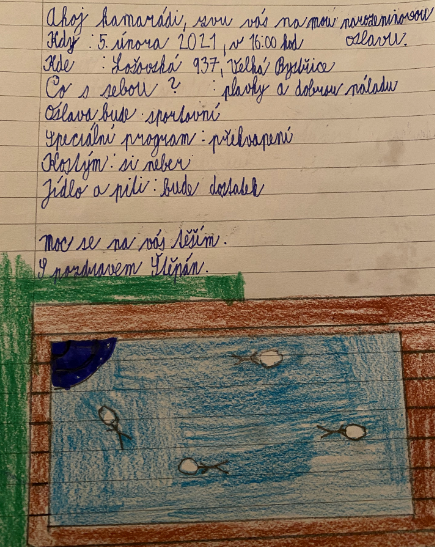 Ahoj kamarádi, zvu vás na mou narozeninovou
Kdy : 5. února 2021, v 16:00 hod oslavu.
Kde : Lošovská 937, Velká Bystřice
Co s sebou ? : plavky a dobrou náladu
Oslava bude sportovní
Speciální program : překvapení
Kostým : si neber
Jídlo a pití : bude dostatek
moc se na vás těším.
S pozdravem Štěpán.